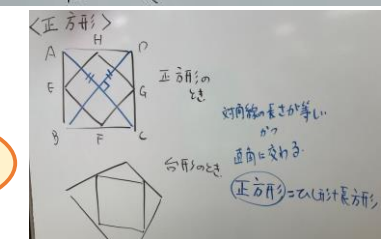 〈正方形〉
A H D
E G
B F C
正方形の
とき
対角線の長さが等しい
かつ
直角に交わる
台形のとき
正方形=ひし形+長方形